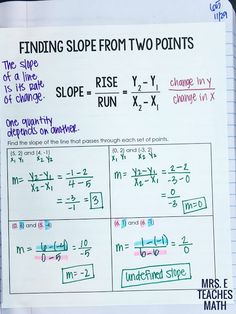 11/29
FINDING SLOPE FROM TWO POINTS
The slope
of a line
is its rate
of change.
SLOPE = RISE / RUN = Y₂ - Y₁ / X₂ - X₁ change in y / change in x
one quantity
depends on another.
Find the slope of the line that passes through each set of points.
(5, 2) and (4, -1)
X₁ Y₁ X₂ Y₂
m = Y₂-Y₁ / X₂-X₁ = -1-2 / 4-5
= -3 / -1 = 3
(0, 2) and (-3, 2)
X₁ Y₁ X₂ Y₂
m = Y₂-Y₁ / X₂-X₁ = 2-2 / -3-0
= 0 / -3 m=0
and
m = 6-(-4) / 0-5 = 10 / -5
m = -2
(6, 1) and (6, -1)
m = 1-(-1) / 6-6 = 2 / 0
undefined slope
MRS. E
TEACHES
MATH